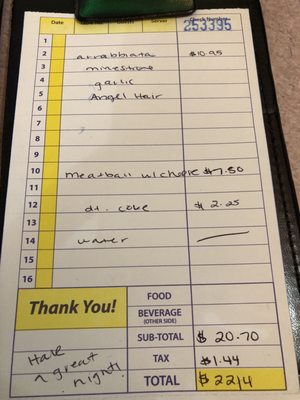 Date Server Check Number
253395
1
2 arrabbiata $10.95
3 minestrone
4 garlic
5 Angel Hair
6
7
8
9
10 meatball w/cheese $7.50
11
12 dt. coke $ 2.25
13
14 water
15
16
Thank You!
FOOD
BEVERAGE
(OTHER SIDE)
SUB-TOTAL $ 20.70
TAX $1.44
TOTAL $22.14
Have
a great
night!